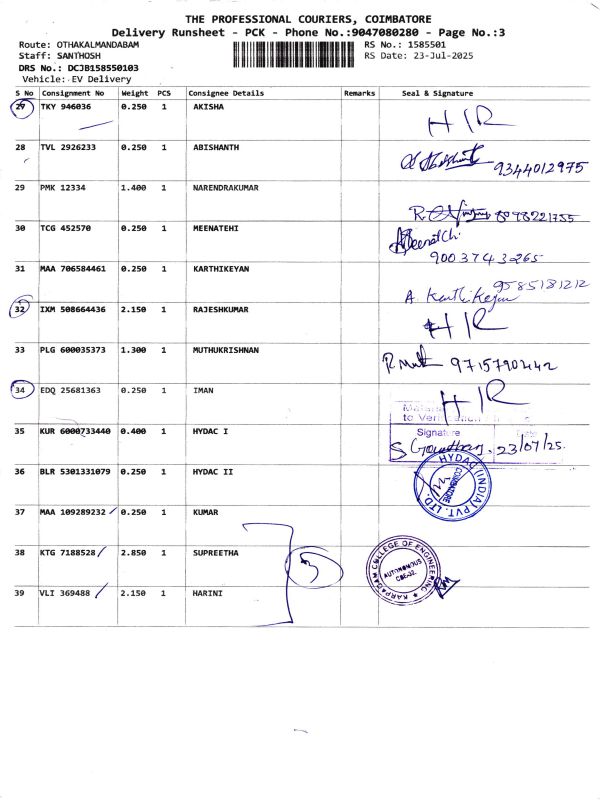 THE PROFESSIONAL COURIERS, COIMBATORE
Delivery Runsheet - PCK - Phone No.:9047080280 - Page No.:3
Route: OTHAKALMANDABAM RS No.: 1585501
Staff: SANTHOSH RS Date: 23-Jul-2025
DRS No.: DCJB158550103
Vehicle: EV Delivery
S No Consignment No Weight PCS Consignee Details Remarks Seal & Signature
27 TKY 946036 0.250 1 AKISHA H/R
28 TVL 2926233 0.250 1 ABISHANTH 9344012975
29 PMK 12334 1.400 1 NARENDRAKUMAR 8098221755
30 TCG 452570 0.250 1 MEENATEHI Meenatchi
9003743265
31 MAA 706584461 0.250 1 KARTHIKEYAN 9585181212
A. Karthikeyan
32 IXM 508664436 2.150 1 RAJESHKUMAR H/R
33 PLG 600035373 1.300 1 MUTHUKRISHNAN R Mut 9715790442
34 EDQ 25681363 0.250 1 IMAN H/R
to Verification
Signature Date
35 KUR 6000733440 0.400 1 HYDAC I S Gowtham. 23/07/25.
36 BLR 5301331079 0.250 1 HYDAC II HYDAC (INDIA) PVT. LTD. COIMBATORE
37 MAA 109289232 0.250 1 KUMAR
38 KTG 7188528 2.850 1 SUPREETHA 3 KARPAGAM COLLEGE OF ENGINEERING AUTONOMOUS CBE-32.
39 VLI 369488 2.150 1 HARINI